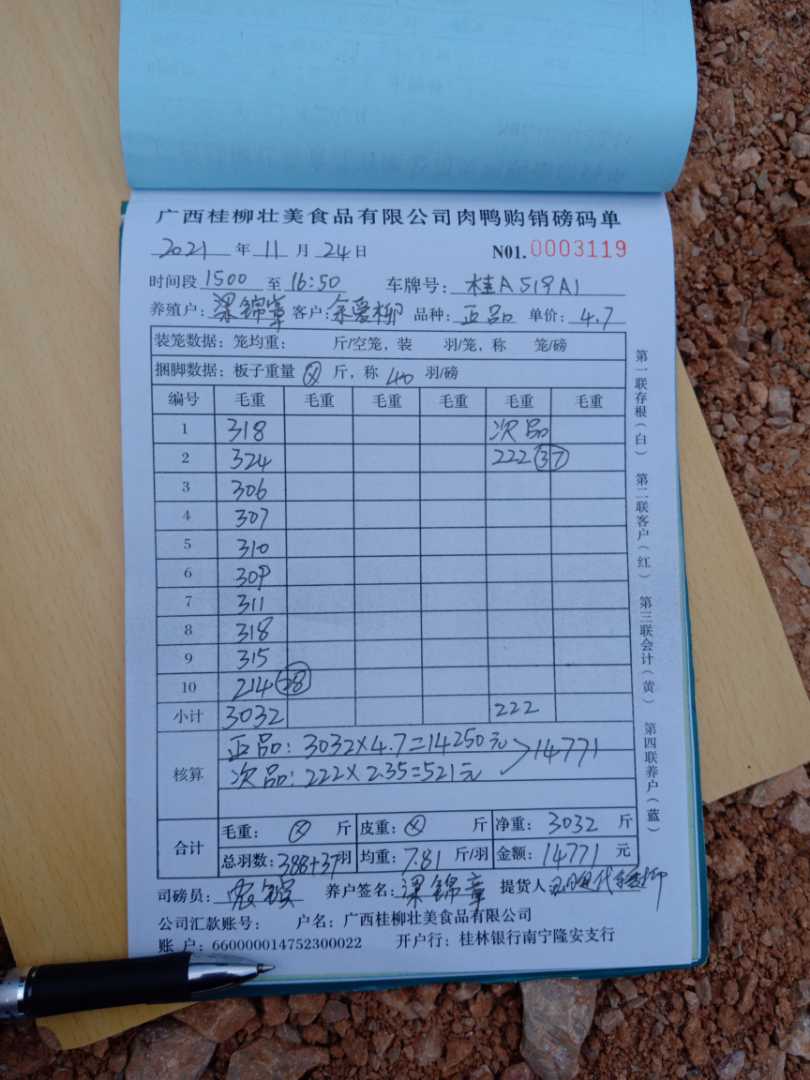 广西桂柳壮美食品有限公司肉鸭购销磅码单
2021 年 11 月 24 日 N01. 0003119
时间段 1500 至 16:50 车牌号: 桂A519A1
养殖户: 梁锦章 客户: 余爱柳 品种: 正品 单价: 4.7
装笼数据: 笼均重: 斤/空笼, 装 羽/笼, 称 笼/磅
捆脚数据: 板子重量 ⊗ 斤, 称 40 羽/磅
编号 毛重 毛重 毛重 毛重 毛重 毛重
1 318 次品
2 324 222 37
3 306
4 307
5 310
6 309
7 311
8 318
9 315
10 214 28
小计 3032 222
核算 正品: 3032×4.7=14250元
次品: 222×2.35=521元 14771
合计 毛重: ⊗ 斤 皮重: ⊗ 斤 净重: 3032 斤
总羽数: 388+37 羽 均重: 7.81 斤/羽 金额: 14771 元
司磅员: 养户签名: 梁锦章 提货人
公司汇款账号: 户名: 广西桂柳壮美食品有限公司
账 户: 660000014752300022 开户行: 桂林银行南宁隆安支行
第一联存根(白) 第二联客户(红) 第三联会计(黄) 第四联养户(蓝)